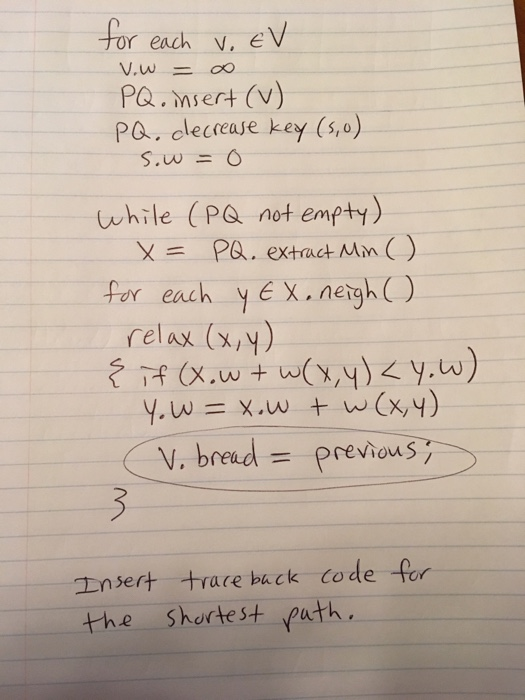 for each v. ∈V
v.w = ∞
PQ.insert(v)
PQ.decrease key (s,o)
s.w = 0
while (PQ not empty)
x = PQ.extractMin()
for each y ∈ x.neigh()
relax (x,y)
{ if (x.w + w(x,y) < y.w)
y.w = x.w + w(x,y)
V.bread = previous;
}
Insert traceback code for
the shortest path.